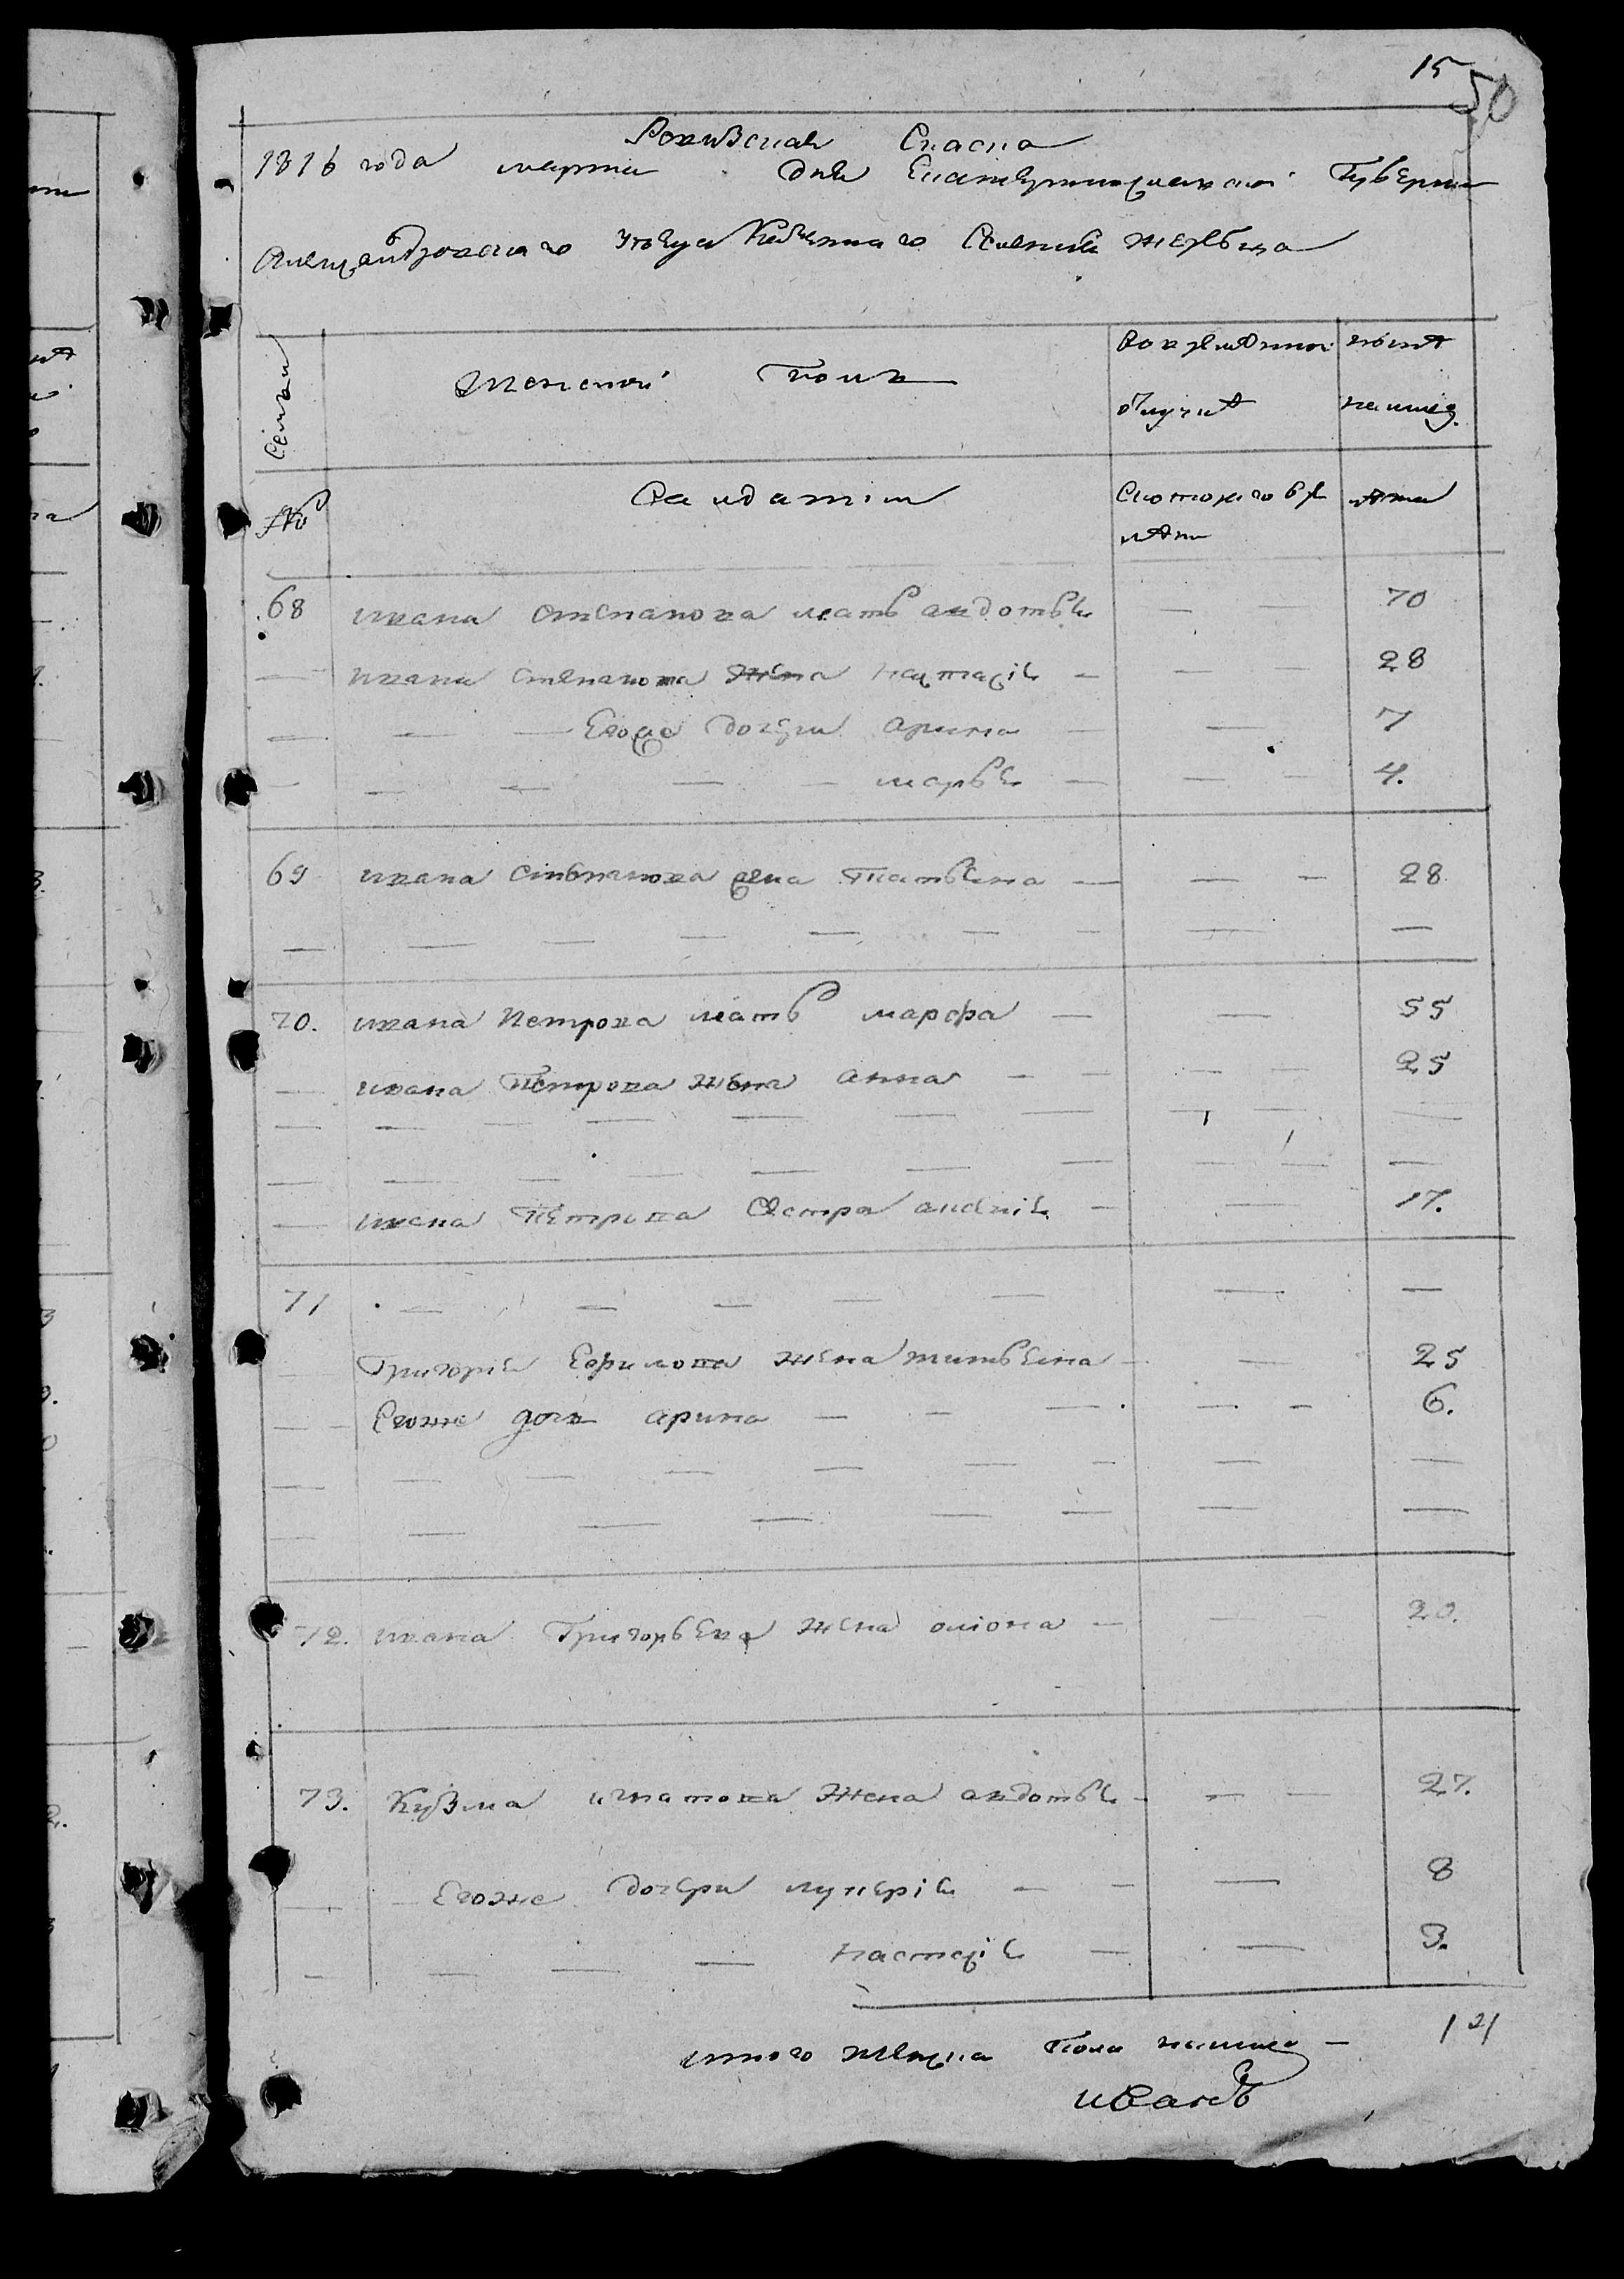 15
50
Ревизская Сказка
1816 года марта дня Екатеринославской Губернии
Александровского уезда Казенного Селения Жеребца
Семьи
Женской полъ
Во временной отлучкѣ
нынѣ налицо
№
Салдатки
Скоторого вре
лѣта
68 ивана степанова мать авдотья — — 70
— ивана степанова жена настасія — — — 28
— — — Егоже дочери арина — — 7
— — — — — марья — — — 4.
69 ивана степанова жена татьяна — — — 28
— — — — — — — — —
70. ивана петрова мать марфа — — 55
— ивана петрова жена анна — — — — 25
— — — — — — — — —
— — — — — — — — —
— ивана петрова сестра — — 17.
71 — — — — — — —
— Григорія Ефимова жена татьяна — — 25
— Егоже дочь арина — — — — — 6.
— — — — — — — — —
— — — — — — — —
72. ивана Григорьева жена — — — 20.
73. Кузма игнатова жена авдотья — — — 27.
— — Егоже дочери лукерія — — — 8
— — — — настасія — — 3.
итого женска пола налицо — 14
иванъ